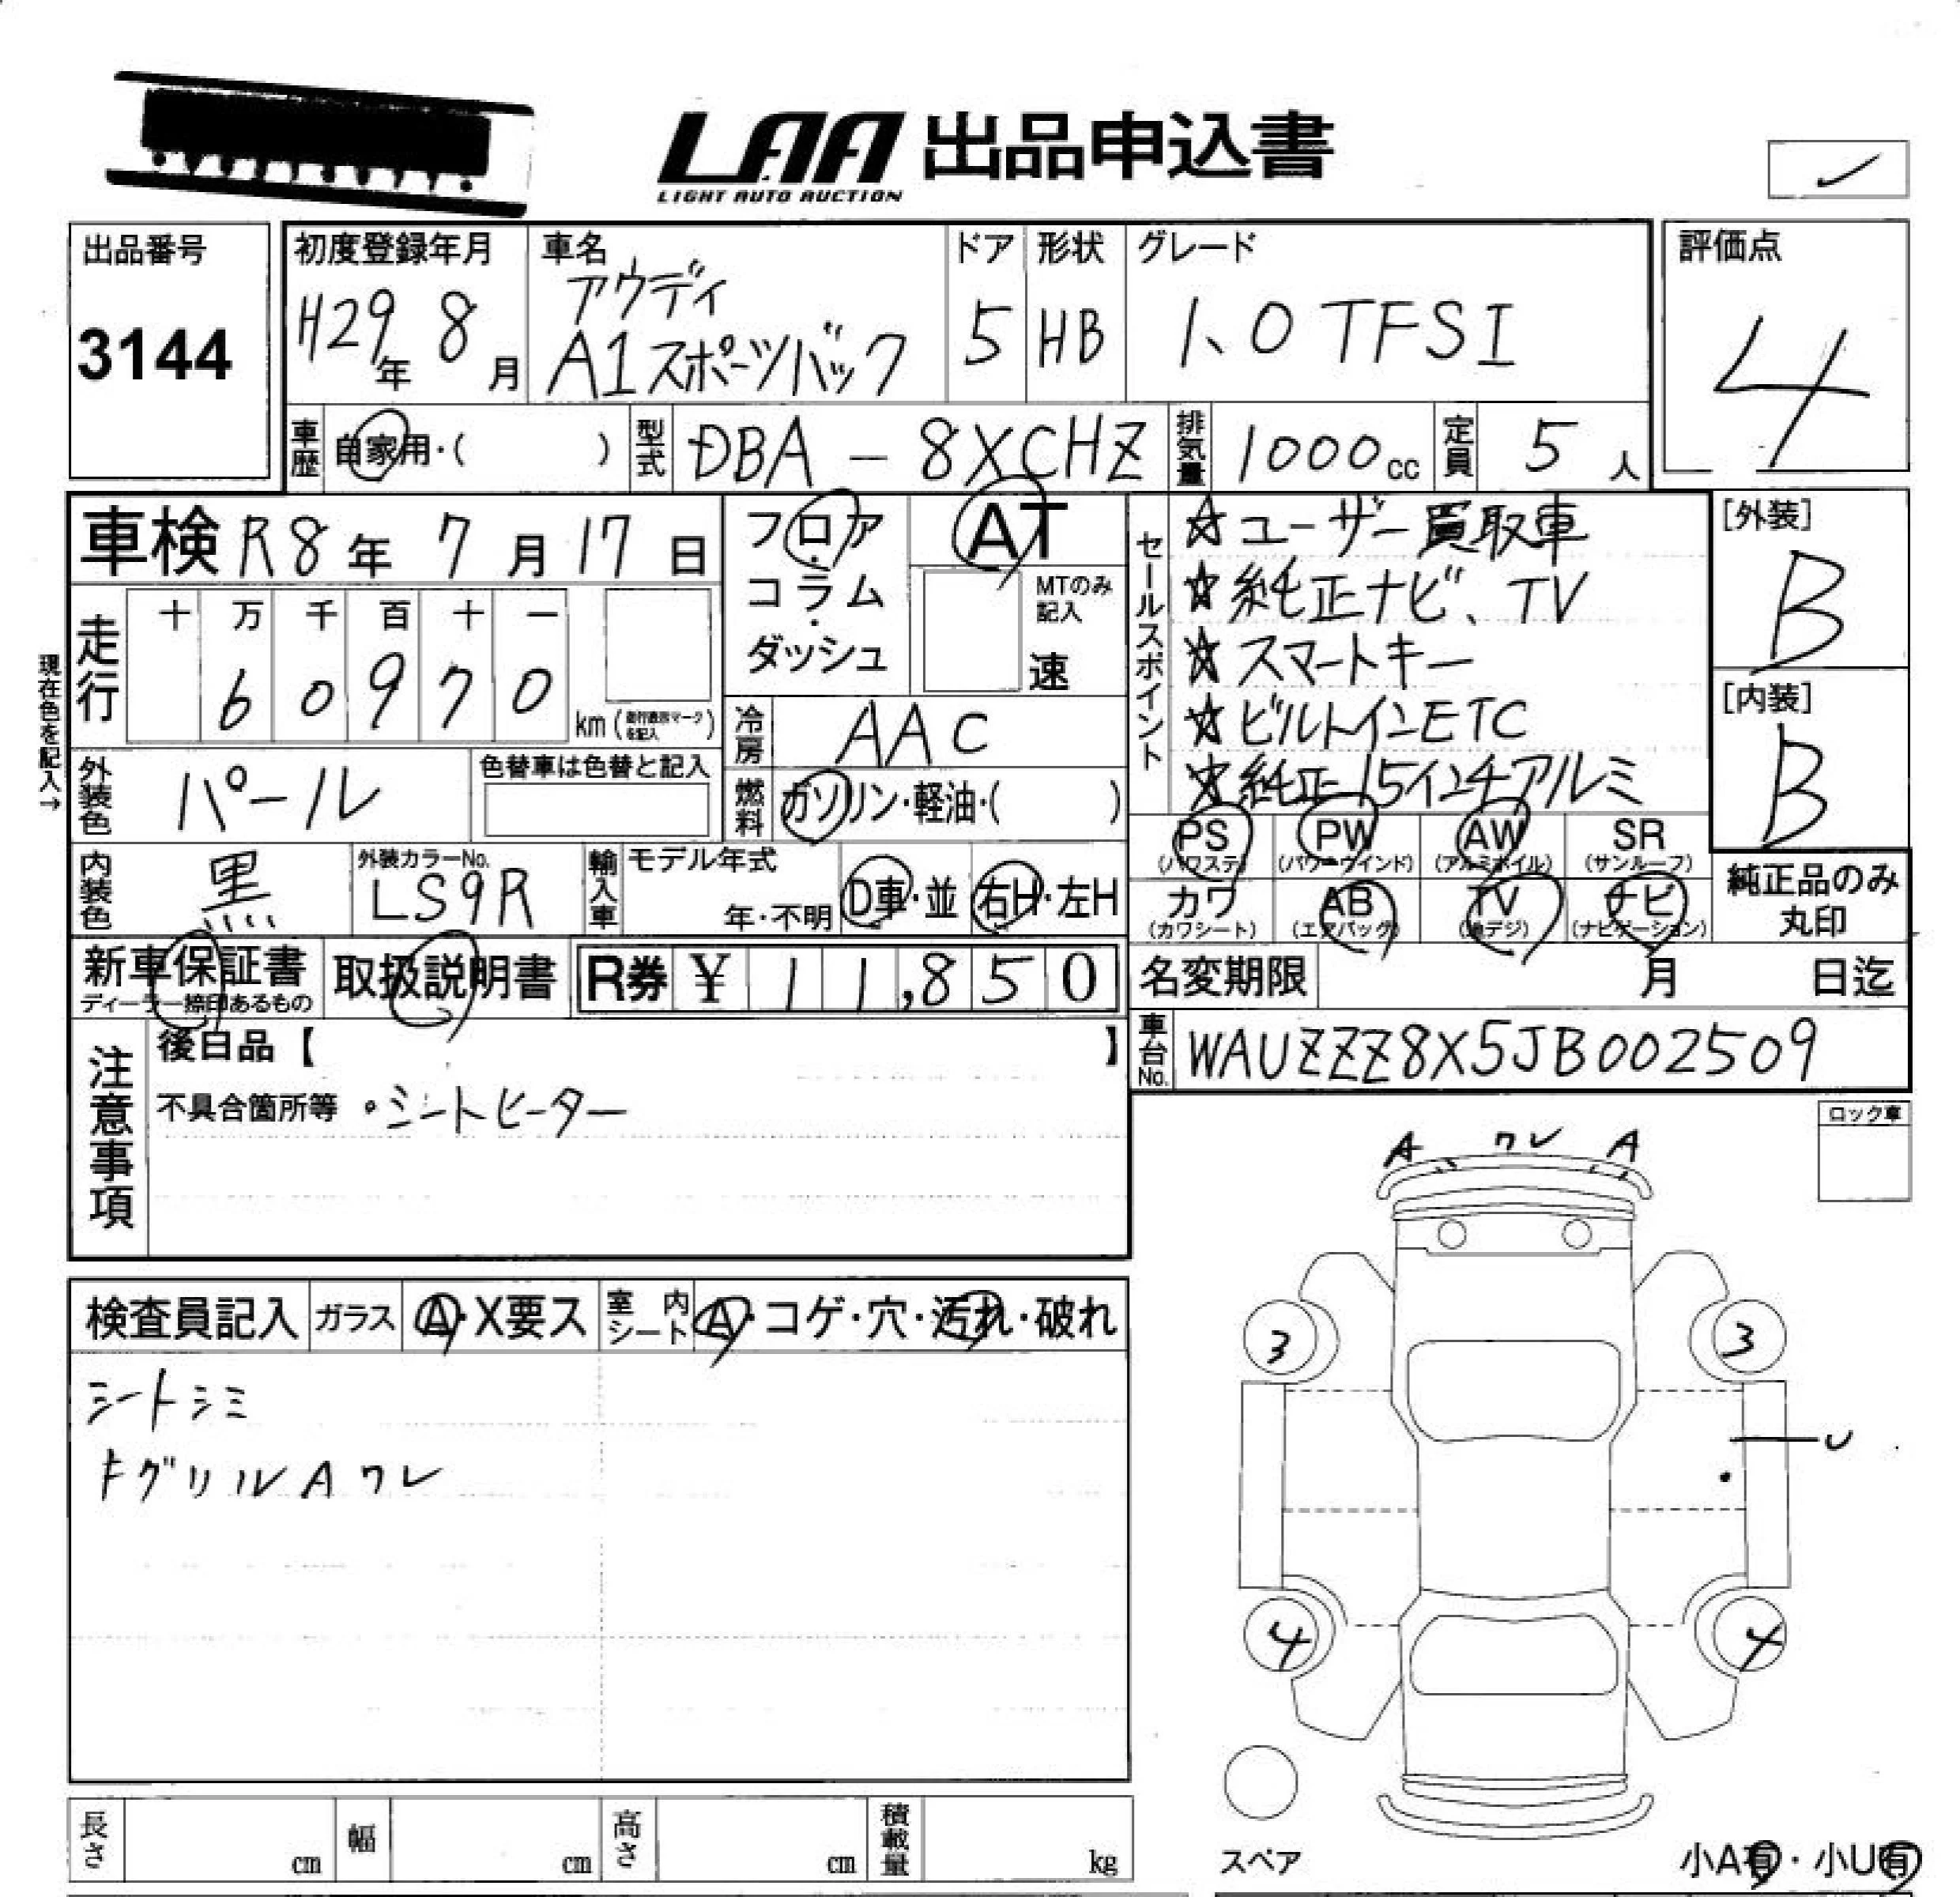 LAA 出品申込書
LIGHT AUTO AUCTION
出品番号
3144
初度登録年月
H29年 8月
車名
アウディ
A1スポーツバック
ドア
5
形状
HB
グレード
1.0 TFSI
評価点
4
車歴 自家用・( )
型式 DBA-8XCHZ
排気量 1000cc
定員 5人
車検 R8年 7月17日
現在色を記入→
走行
十 万 千 百 十 一
6 0 9 7 0
km
フロア・コラム・ダッシュ
AT
MTのみ記入
速
冷房 AAC
燃料 ガソリン・軽油・( )
セールスポイント
☆ユーザー買取車
☆純正ナビ、TV
☆スマートキー
☆ビルトインETC
☆純正15インチアルミ
[外装]
B
[内装]
B
外装色 パール
色替車は色替と記入
内装色 黒
外装カラーNo.
LS9R
輸入車
モデル年式
年・不明
D車・並
右H・左H
PS
(パワステ)
PW
(パワーウインド)
AW
(アルミホイル)
SR
(サンルーフ)
カワ
(カワシート)
AB
(エアバック)
TV
(地デジ)
ナビ
(ナビゲーション)
純正品のみ
丸印
新車保証書
ディーラー捺印あるもの
取扱説明書
R券 ¥ 11,850
名変期限 月 日迄
車台No. WAUZZZ8X5JB002509
注意事項
後日品【 】
不具合箇所等 ・シートヒーター
ロック車
A ワレ A
検査員記入
ガラス A・X要ス
室内シート A・コゲ・穴・汚れ・破れ
シートシミ
FグリルAワレ
3 3
U
4 4
スペア
小A有・小U有
長さ cm
幅 cm
高さ cm
積載量 kg